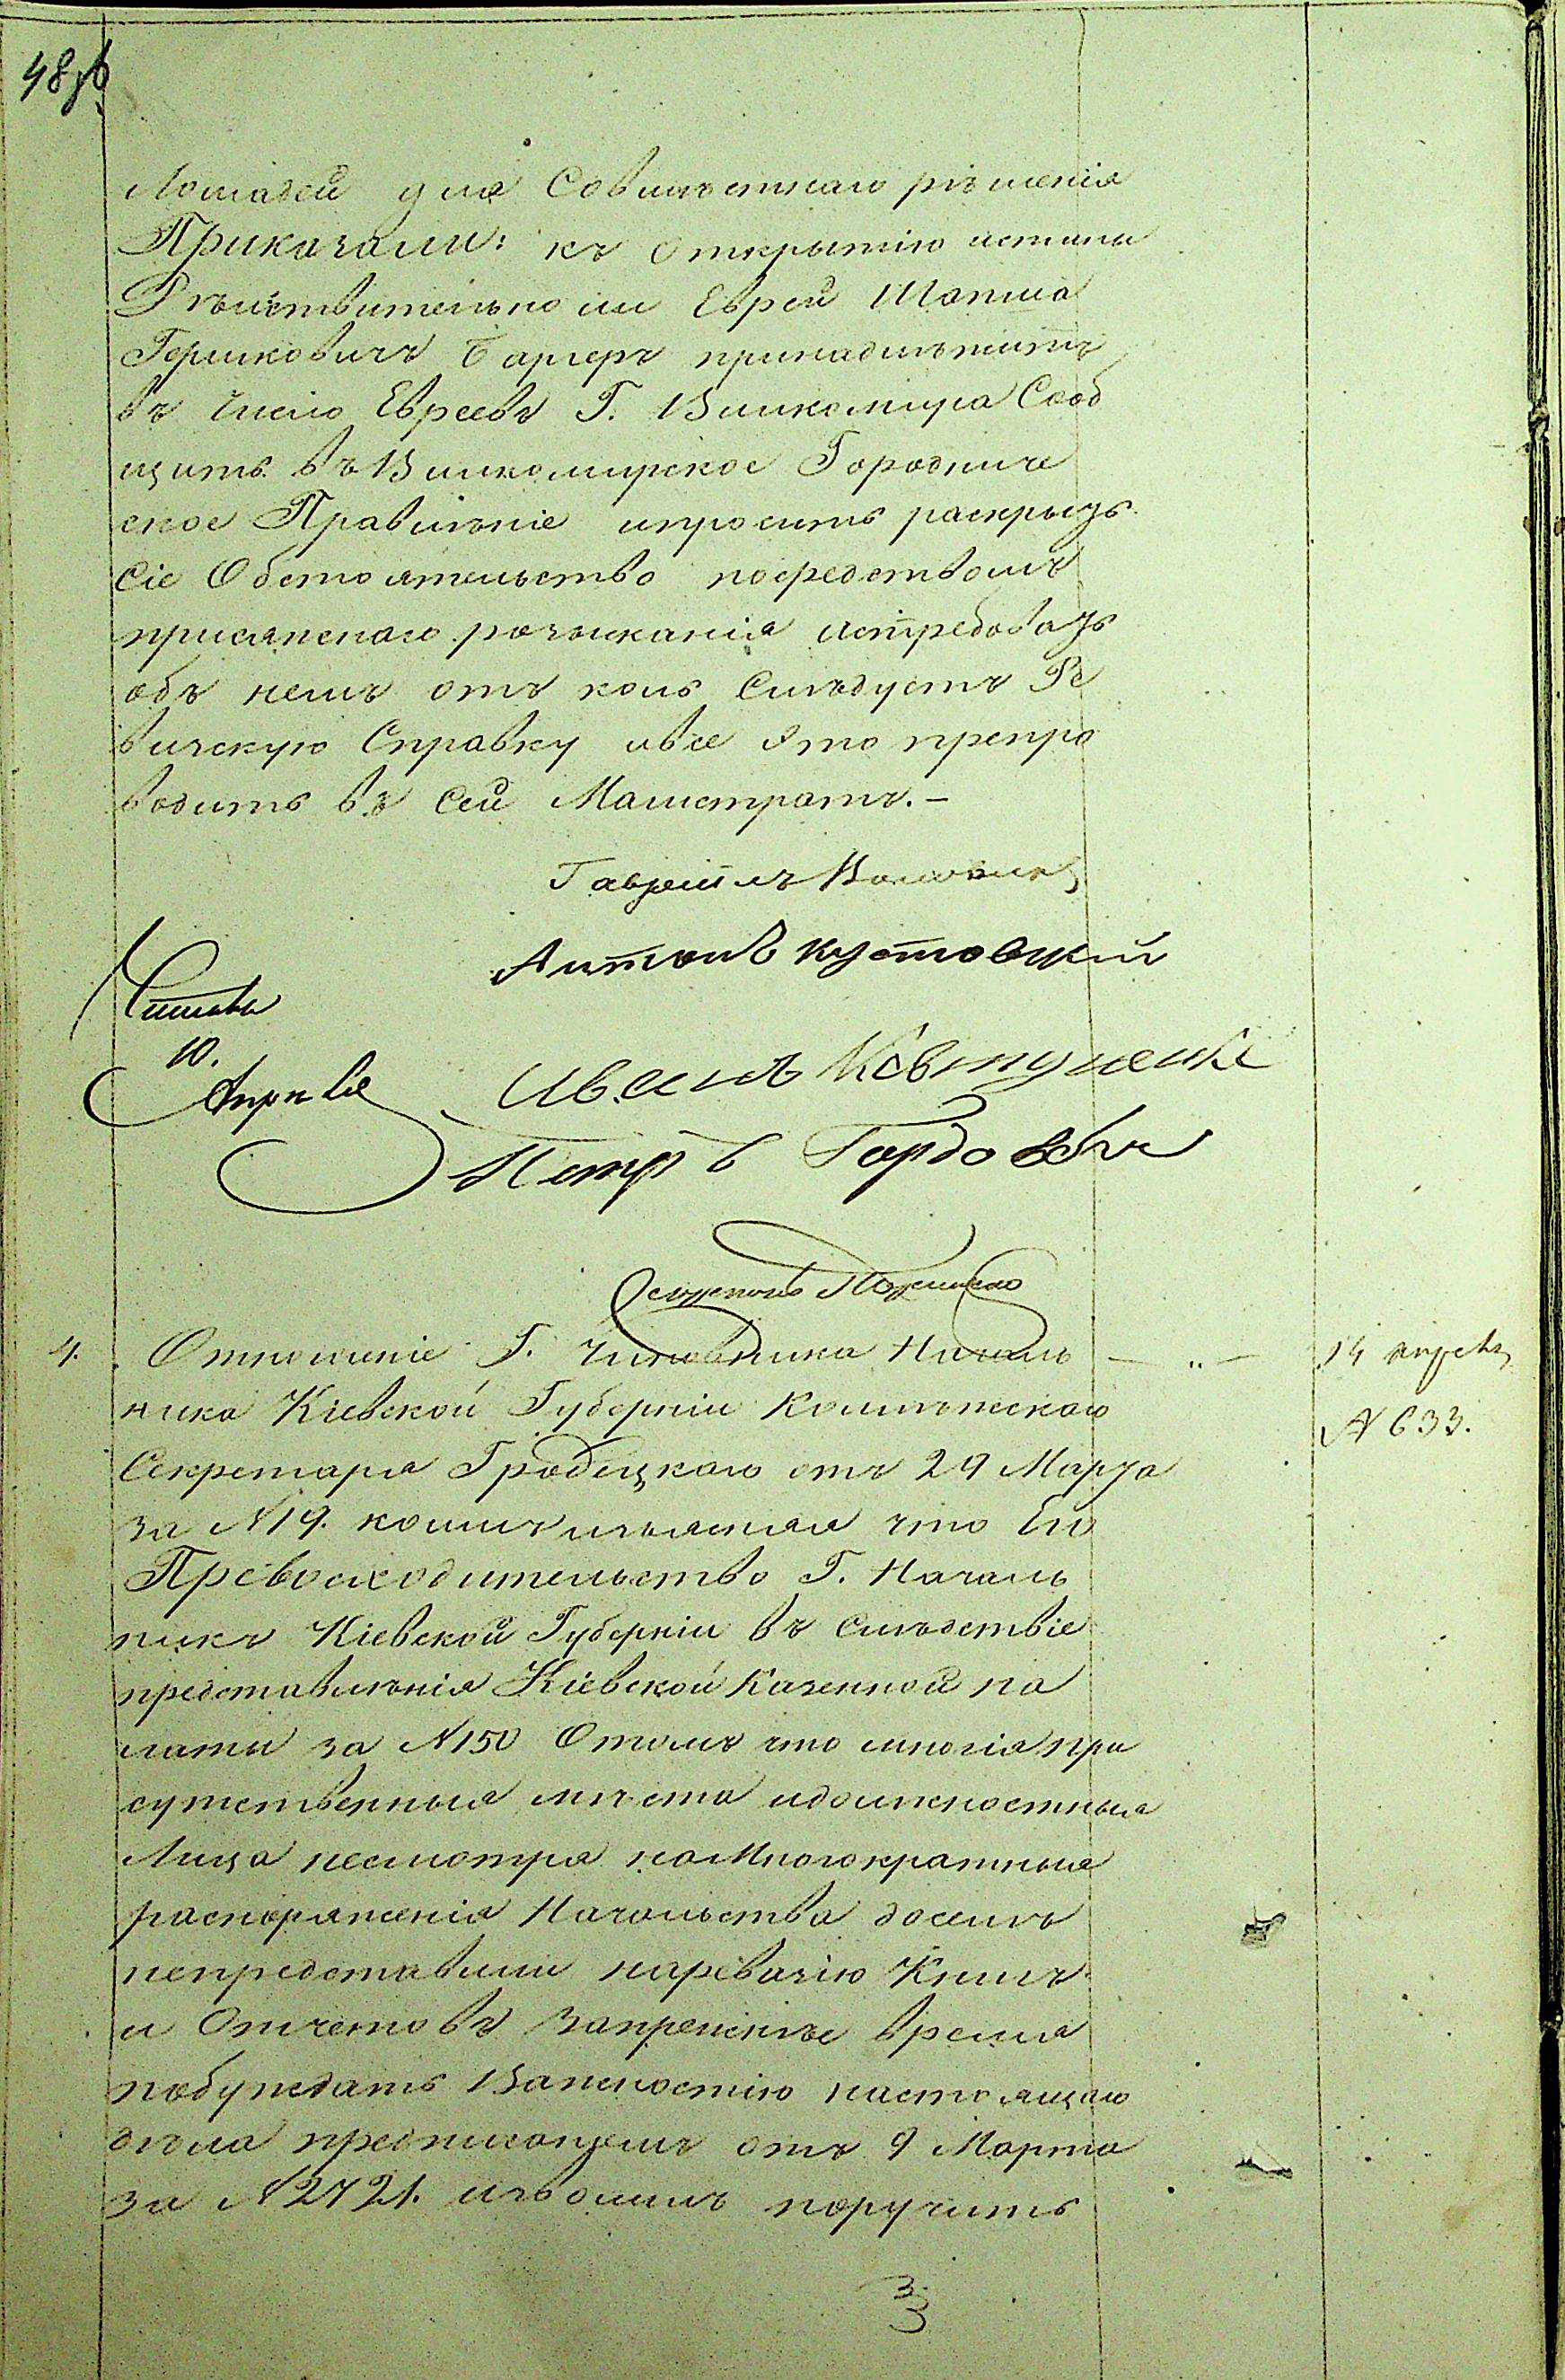 48 об
Лошадей для Совместнаго решенія
Приказали: къ открытію истины
Действительно ли Еврей Шапша
Гершковичъ Баргеръ принадлежитъ
въ число Евреевъ Г. Вилкомира Сооб
щить въ Вилкомирское Городниче
ское Правленіе и просить раскрыть
Сіе Обстоятельство посредствомъ
присяжнаго розысканія истребовать
объ немъ отъ коль Следуетъ Ре
визскую Справку и все Это препро
водить въ Сей Магистратъ.-
Гавріилъ
Антонъ Кустовский
Читалъ
10.
Апреля
Иванъ Ковтуненко
Петръ Гордовичъ
4. Отношеніе Г. Чиновника Началь — „ — 14 апреля
ника Кіевской Губерніи Коллежскаго
N 633.
Секретаря Гродецкаго отъ 29 Марта
за N 19. коимъ изъясняя что Его
Превосходительство Г. Началь
никъ Кіевской Губерніи въ Следствіе
представленія Кіевской Казенной па
латы за N 150 О томъ что многія при
сутственныя места и должностныя
Лица несмотря на Многократныя
распоряженія Начальства доселе
непредставили на ревизію Книгъ
и Отчетовъ За прежнее время
побуждаясь Важностію настоящаго
дела предписаніемъ отъ 9 Марта
за N 2721. изволилъ поручить